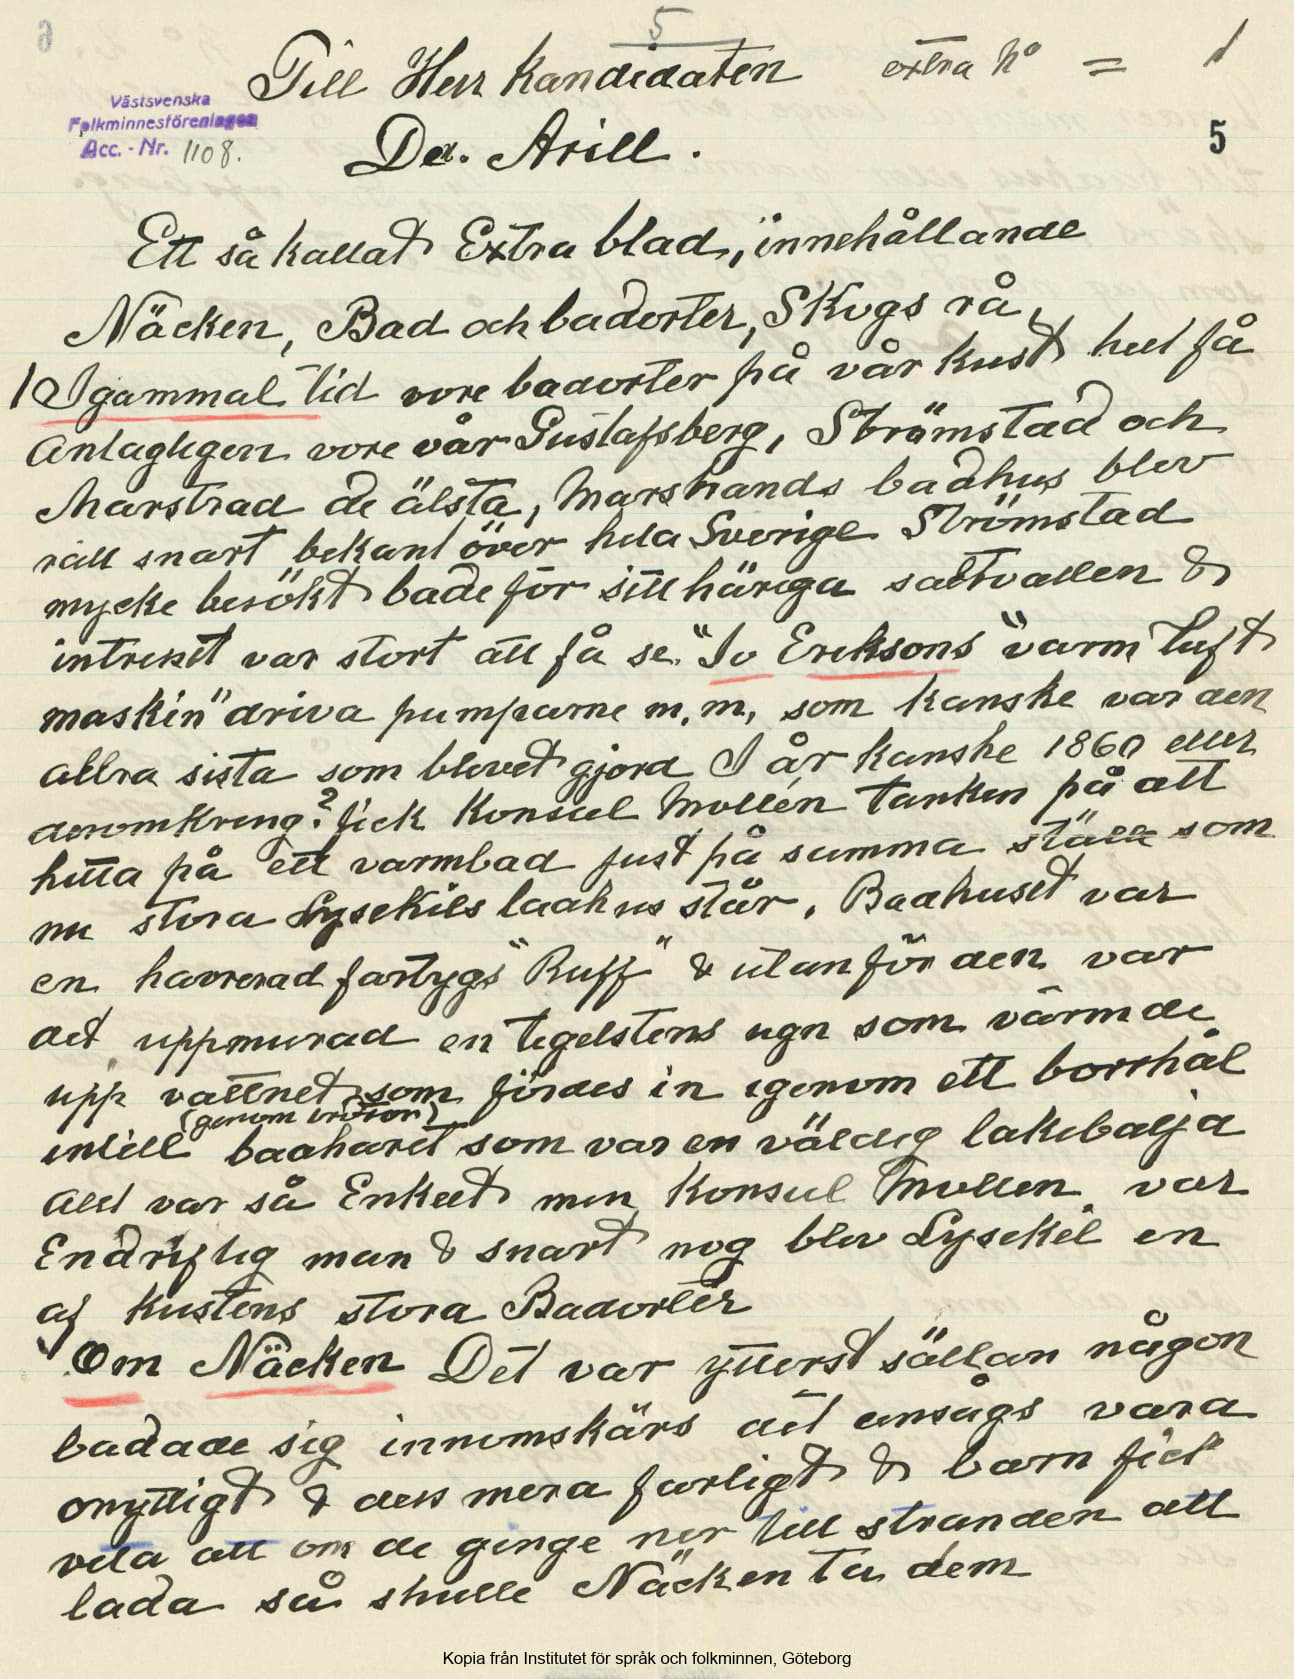 5
Till Herr Kandidaten extra N° = 1
Västsvenska
Folkminnesföreningen
Acc. - Nr. 1108.
Da. Arill.
5
Ett så kallat Extra blad, innehållande
Näcken, Bad och badorter, Skogs rå,
I gammal tid vore badorter på vår kust helt få
antagligen vore vår Gustafsberg, Strömstad och
Marstrad de älsta, Marstrands badhus blev
rätt snart bekant över hela Sverige Strömstad
mycke besökt både för sitt häriga saltvatten &
intreset var stort att få se "Jo Eriksons "varm luft
maskin" driva pumparne m, m, som kanske var den
allra sista som blevet gjord I år kanske 1860 eller
deromkreng? fick Konsul Mollén tanken på att
hitta på ett varmbad just på samma ställe som
nu stora Lysekils badhus står. Badhuset var
en havrerad fartygs "Ruff" & utanför den var
det uppmurad en tegelstens ugn som värmde
upp vattnet som fördes in igenom ett borrhål
(genom
intill badkaret som var en väldig lakebalja
allt var så Enkelt men Konsul Mollen var
Endriftig man & snart nog blev Lysekil en
af kustens stora Badorter
Om Näcken Det var ytterst sällan någon
badade sig innomskärs det ansågs vara
onyttigt & dess mera farligt & barn fick
veta att om de ginge ner till stranden att
bada så skulle Näcken ta dem
Kopia från Institutet för språk och folkminnen, Göteborg